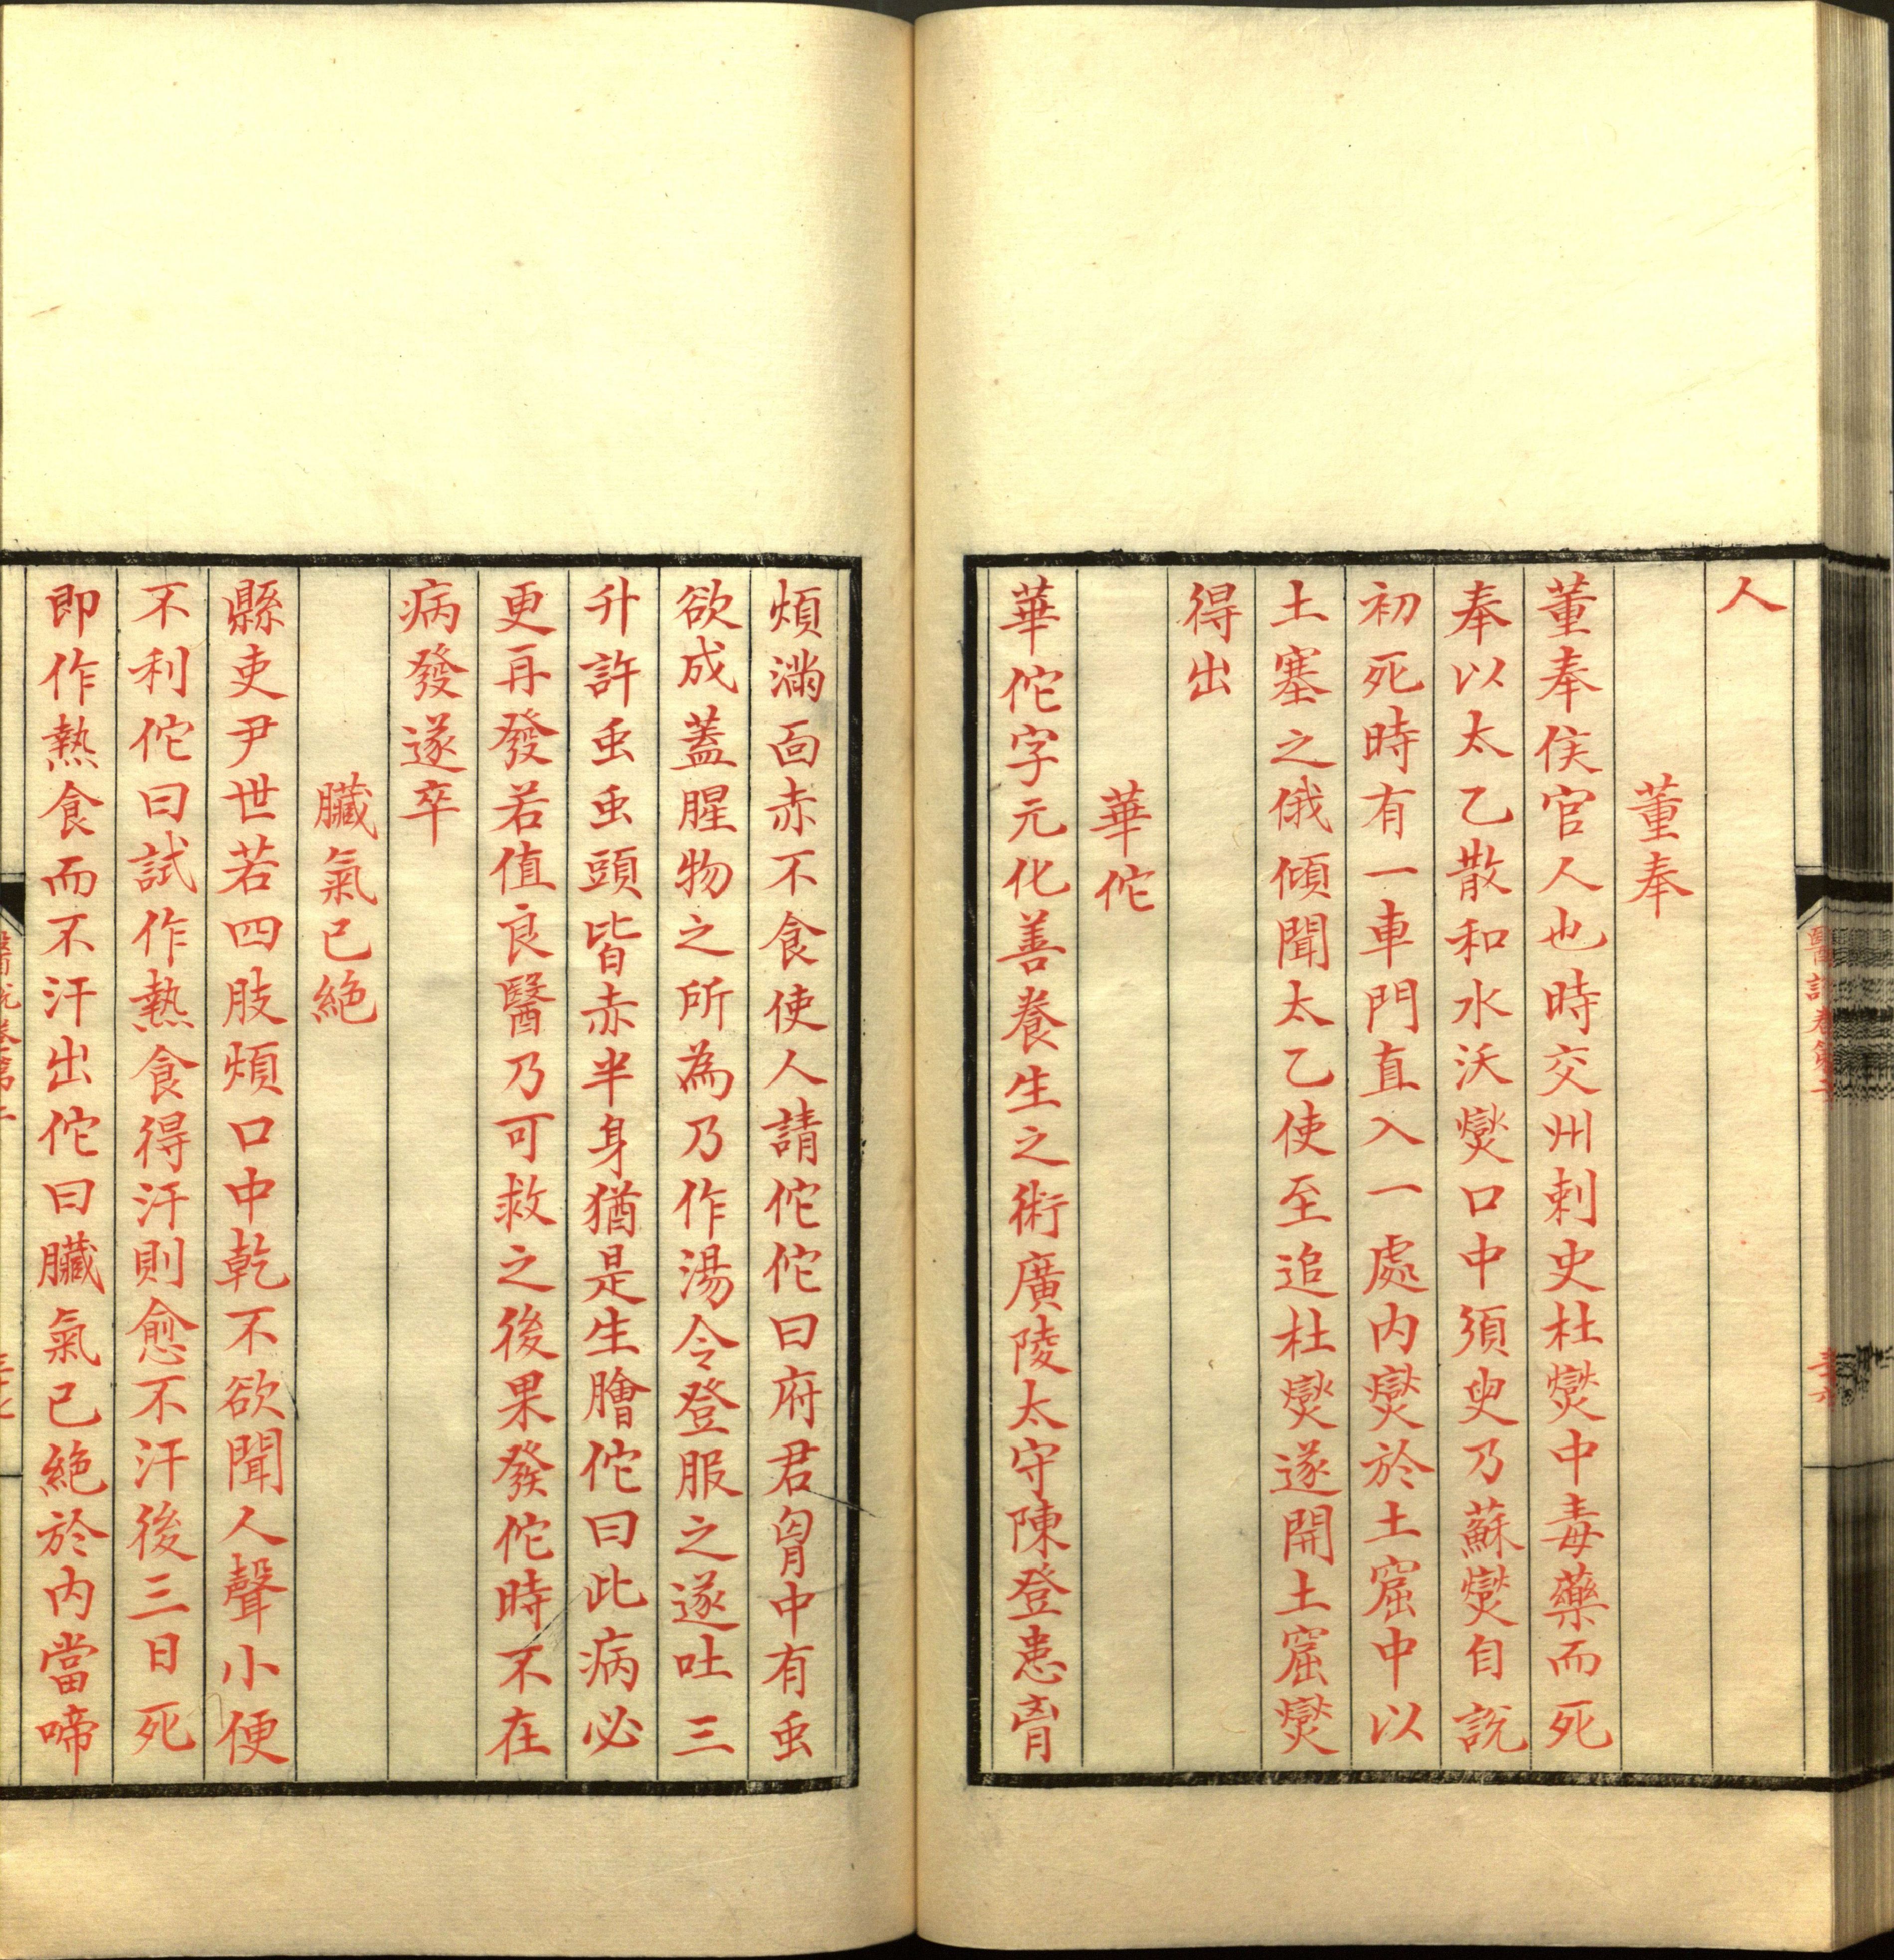 人
董奉
董奉侯官人也時交州刺史杜燮中毒藥而死
奉以太乙散和水沃燮口中須臾乃蘇燮自說
初死時有一車門直入一處內燮於土窟中以
土塞之俄傾聞太乙使至追杜燮遂開土窟燮
得出
華佗
華佗字元化善養生之術廣陵太守陳登患胷
煩滿面赤不食使人請佗佗曰府君胷中有虫
欲成蓋腥物之所為乃作湯令登服之遂吐三
升許虫虫頭皆赤半身猶是生膾佗曰此病必
更再發若值良醫乃可救之後果發佗時不在
病發遂卒
臟氣已絕
縣吏尹世若四肢煩口中乾不欲聞人聲小便
不利佗曰試作熱食得汗則愈不汗後三日死
即作熱食而不汗出佗曰臟氣已絕於內當啼
醫說卷第二